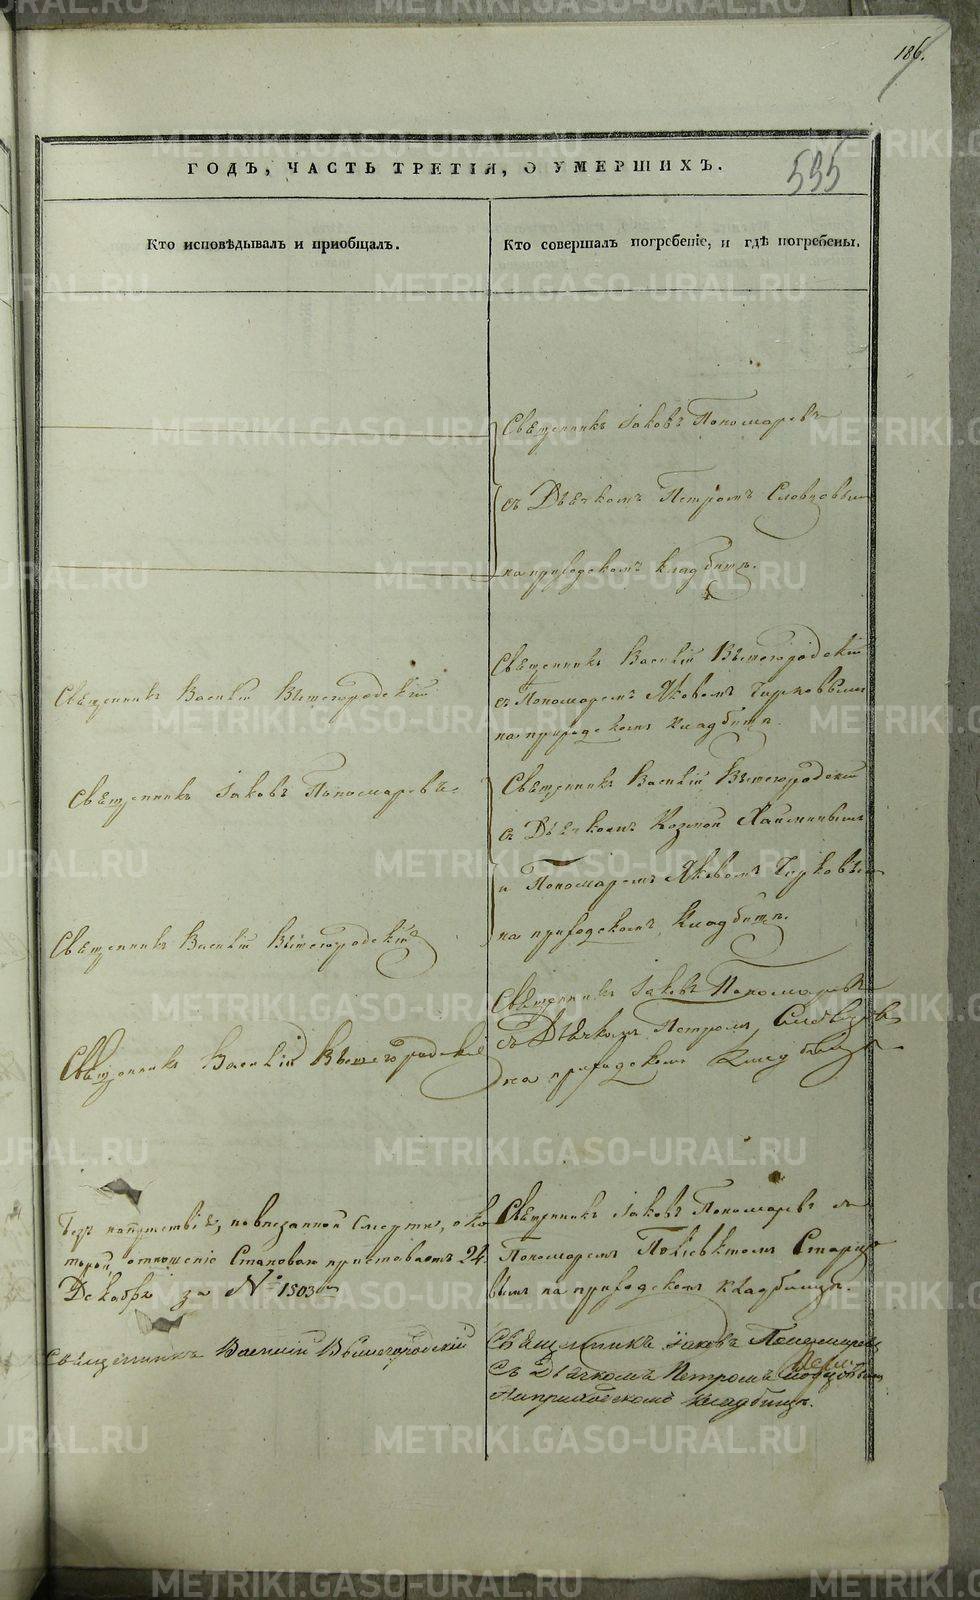 186.
ГОДЪ, ЧАСТЬ ТРЕТІЯ, О УМЕРШИХЪ.
595
Кто исповѣдывалъ и пріобщалъ.
Кто совершалъ погребеніе, и гдѣ погребены.
Священникъ Іаковъ Пономаревъ
съ Дьячкомъ Петромъ Словцовымъ
на приходскомъ кладбищѣ.
Священникъ Василій Вышегородскій
Священникъ Василій Вышегородскій
съ Пономаремъ Яковомъ Чирковымъ
на приходскомъ кладбищѣ.
Священникъ Іаковъ Пономаревъ.
Священникъ Василій Вышегородскій
Священникъ Василій Вышегородскій
съ Дьячкомъ Козмой
и Пономаремъ Яковомъ Чирковымъ
на приходскомъ кладбищѣ.
Священникъ Василій Вышегородскій
Священникъ Іаковъ Пономаревъ
съ Дьячкомъ Петромъ Словцовымъ
на приходскомъ кладбищѣ
Безъ напутствія, по внезапной смерти, о ко
торой отношеніе Становаго пристава отъ 24.
Декабря за № 1503м
Священникъ Іаковъ Пономаревъ съ
Пономаремъ Поліевктомъ
вымъ на приходскомъ кладбищѣ.
Священникъ Василий Вышегородский
Священникъ Іаковъ Пономаревъ
Съ Дьячкомъ Петромъ Словцовымъ
На приходскомъ кладбищѣ.
METRIKI.GASO-URAL.RU